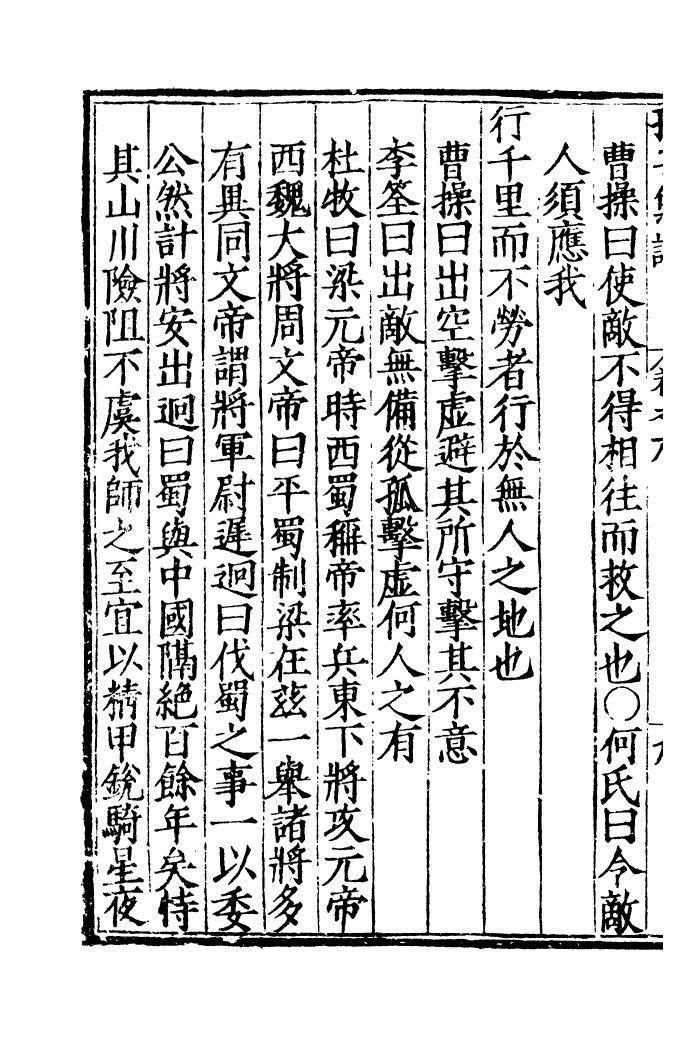 曹操曰使敵不得相往而救之也〇何氏曰令敵
人須應我
行千里而不勞者行於無人之地也
曹操曰出空擊虛避其所守擊其不意
李筌曰出敵無備從孤擊虛何人之有
杜牧曰梁元帝時西蜀稱帝率兵東下將攻元帝
西魏大將周文帝曰平蜀制梁在茲一舉諸將多
有異同文帝謂將軍尉遲迥曰伐蜀之事一以委
公然計將安出迥曰蜀與中國隔絶百餘年矣恃
其山川險阻不虞我師之至宜以精甲銳騎星夜